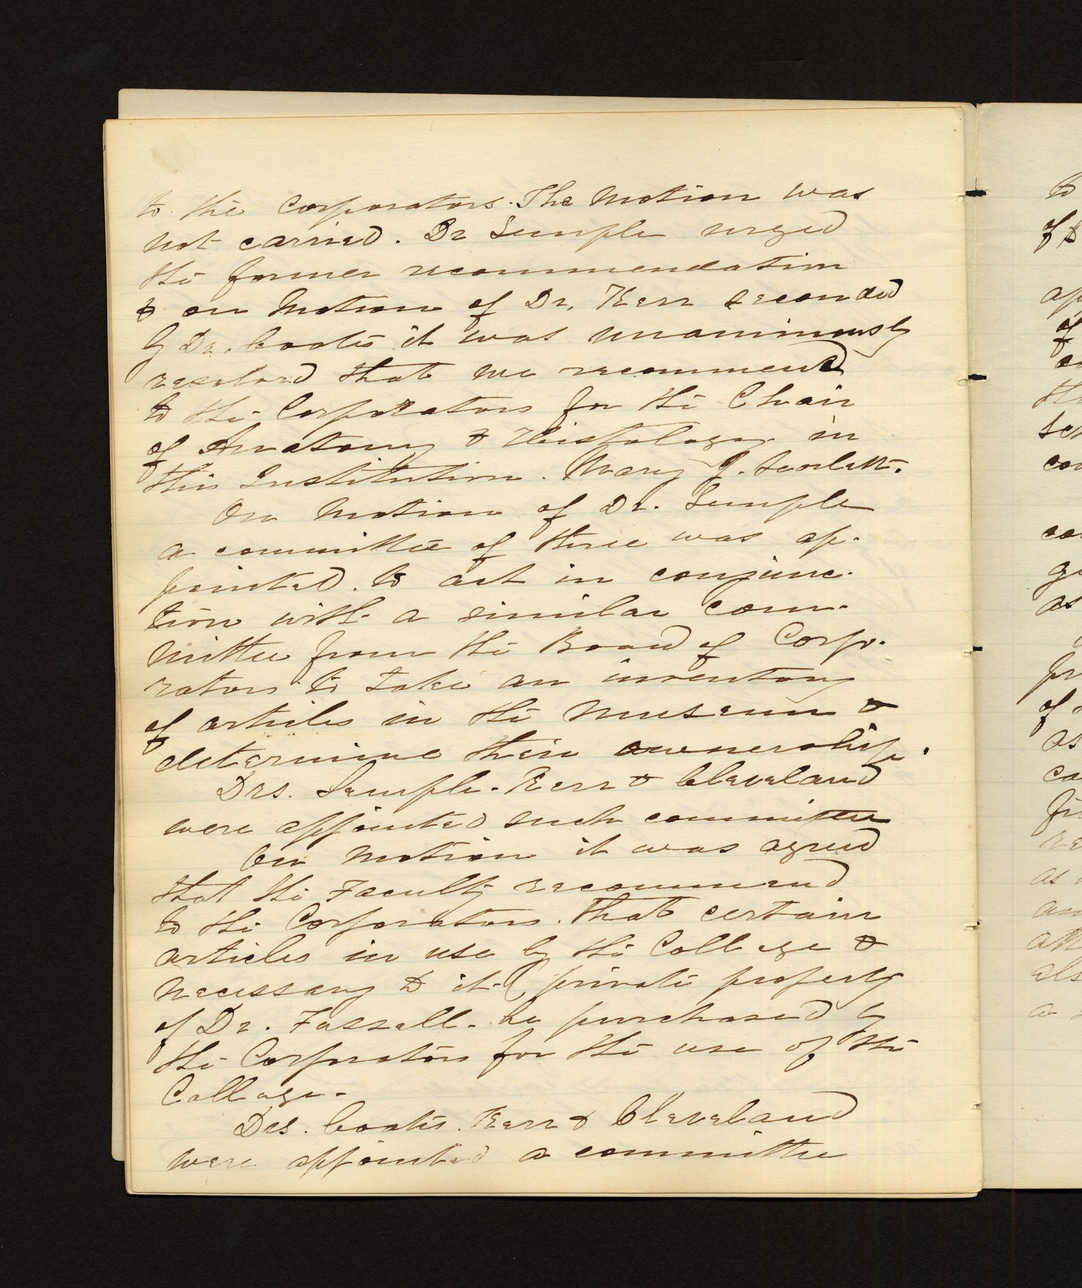 to the Corporators. The motion was
not carried. Dr Semple urged
the former recommendation
& on motion of Dr. Kerr seconded
by Dr. Coates it was unanimously
resolved that we recommend
to the Corporators for the Chair
of Anatomy & Histology in
this Institution. Mary J. Scarlett.
On motion of Dr. Semple
a committee of three was ap-
pointed to act in conjunc-
tion with a similar com-
mittee from the Board of Corpo-
rators to take an inventory
of articles in the museum &
determine their ownership.
Drs. Semple. Kerr & Cleveland
were appointed such committee
On motion it was agreed
that the Faculty recommend
to the Corporators. That certain
articles in use by the College &
necessary to it. (private property
of Dr. Fussell. be purchased by
the Corporators for the use of the
College.
Drs. Coates. Kerr & Cleveland
were appointed a committee